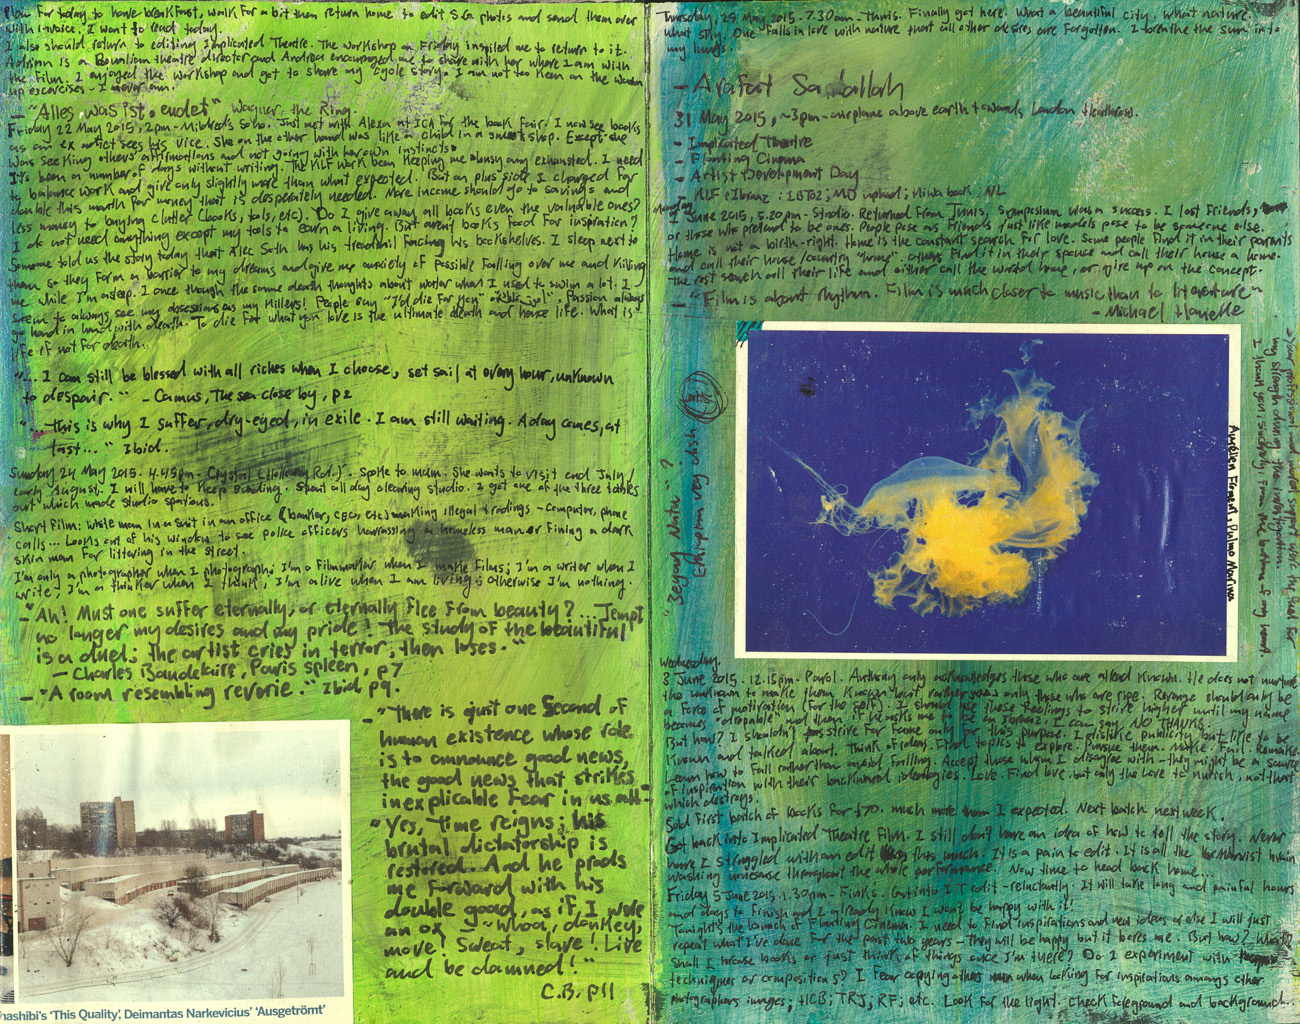 Plan for today to have breakfast, walk for a bit than return home to edit S.G. photos and send them over
with invoice. I want to read today.
I also should return to editing Implicated Theatre. The workshop on Friday inspired me to return to it.
is a theatre director and Andrea encouraged me to share with her where I am with
the film. I enjoyed the workshop and got to share my "cycle story". I am not too keen on the warm
up excercises - I never am.
- "Alles was ist, endet" Wagner, the Ring.
Friday 22 May 2015, 2pm - Mildred's Soho. Just met with Alexa at ICA for the book fair. I now see books
as an ex addict sees his vice. She on the other hand was like a child in a sweet shop. Except she
was seeking others' affirmations and not going with her own instincts.
It's been a number of days without writing. The KLF work been keeping me busy and exhausted. I need
to balance work and give only slightly more than what expected. But on plus side I charged for
double this month for money that is desperately needed. More income should go to savings and
less money to buying clutter (books, tols, etc). Do I give away all books even the valuable ones?
I do not need anything except my tols to earn a living. But aren't books food for inspiration?
Someone told us the story today that Alec Soth has his treadmill facing his bookshelves. I sleep next to
them so they form a barrier to my dreams and give me anxiety of possible falling over me and killing
me while I'm asleep. I once though the same death thoughts about water when I used to swim a lot. I
seem to always see my obsessions as my killers! People say "I'd die for you" . Passion always
go hand in hand with death. To die for what you love is the ultimate death and hence life. What is
life if not for death...
"... I can still be blessed with all riches when I choose, set sail at every hour, unknown
to despair." - Camus, The sea close by, p2
"... This is why I suffer, dry-eyed, in exile. I am still waiting. A day comes, at
last..." Ibid.
Sunday 24 May 2015. 4.45pm - Crystal (Holloway Rd.). Spoke to mum. She wants to visit end July/
early August. I will have to keep saving. Spent all day cleaning studio. I got one of the three tables
out which made studio spacious.
Short film: White man in a suit in an office (banker, CEO, etc) making illegal tradings - computer, phone
calls... Looks out of his window to see police officers harrassing a homeless man or fining a dark
skin man for littering in the street.
I'm only a photographer when I photograph; I'm a filmmaker when I make films; I'm a writer when I
write; I'm a thinker when I think; I'm alive when I am living; otherwise I'm nothing.
- "Ah! Must one suffer eternally, or eternally flee from beauty? ... Tempt
no longer my desires and my pride! The study of the beautiful
is a duel; the artist cries in terror, then loses."
- Charles Baudelaire, Paris spleen, p7
- "A room resembling reverie." Ibid p9.
- "There is just one second of
human existence whose role
is to announce good news,
the good news that strikes
inexplicable fear in us all."
"Yes, Time reigns; his
brutal dictatorship is
restored. And he prods
me forward with his
double goad, as if I were
an ox - "Whoa, donkey,
move! Sweat, slave! Live
and be damned!"
C.B. p11
hashibi's 'This Quality', Deimantas Narkevicius' 'Ausgeträmt'
Tuesday, 29 May 2015 - 7.30am - Tunis. Finally got here. What a beautiful city. What nature.
What sky. One falls in love with nature that all other desires are forgotten. I breathe the sun into
my lungs.
- Arafat Sadallah
31 May 2015, ~3pm - airplane above earth towards London Heathrow.
- Implicated Theatre
- Floating Cinema
- Artist Development Day
- KLF + Ibraaz: IBT02; MD upload; Hiwa book; NL
Monday
1 June 2015, 5.20pm - Studio. Returned from Tunis, symposium was a success. I lost friends,
or those who pretend to be ones. People pose as friends just like models pose to be someone else.
Home is not a birth-right. Home is the constant search for love. Some people find it in their parents
and call their house/country "home". Others find it in their spouse and call their house a home.
The rest search all their life and either call the world home, or give up on the concept.
- "Film is about rhythm. Film is much closer to music than to literature"
- Michael Haneke
"Beyay Natu"?
Ethiopian veg dish
Aurélien Froment, Pulmo Marina
Wednesday.
3 June 2015. 12.15pm. Parol. Anthony only acknowledges those who are alread known. He does not nurture
the unknown to make them known but rather only those who are ripe. Revenge should only be
a force of motivation (for the self). I should use these feelings to strive higher until my name
becomes "dropable" and than if he asks me to be in Ibraaz, I can say, NO THANKS.
But how? I shouldn't strive for fame only for this purpose. I dislike publicity but like to be
known and talked about. Think of ideas. Find topics to explore. Pursue them. Make. Fail. Remake.
Learn how to fall rather than avoid falling. Accept those whom I disagree with - they might be a source
of inspiration with their backward ideologies. Love. Find love, but only the love to nurish, not that
which destroys.
Sold first batch of books for £70. much more than I expected. Next batch next week.
Got back into Implicated Theatre film. I still don't have an idea of how to tell the story. Never
have I struggled with an edit this much. It is a pain to edit. It is all the Marxist brain
washing nonsense throughout the whole performance. Now time to head back home...
Friday 5 June 2015, 1.30pm - Finks. Got into I.T edit - reluctantly. It will take long and painful hours
and days to finish and I already know I won't be happy with it!
Tonight's the launch of Floating Cinema. I need to find inspirations and new ideas or else I will just
repeat what I've done for the past two years - They will be happy but it bores me. But how? What?
Shall I browse books or just think of things once I'm there? Do I experiment with
techniques or compositions? I fear copying others when looking for inspirations amongs other
photographers images; HCB; TRJ; RF; etc. Look for the light. Check foreground and background...